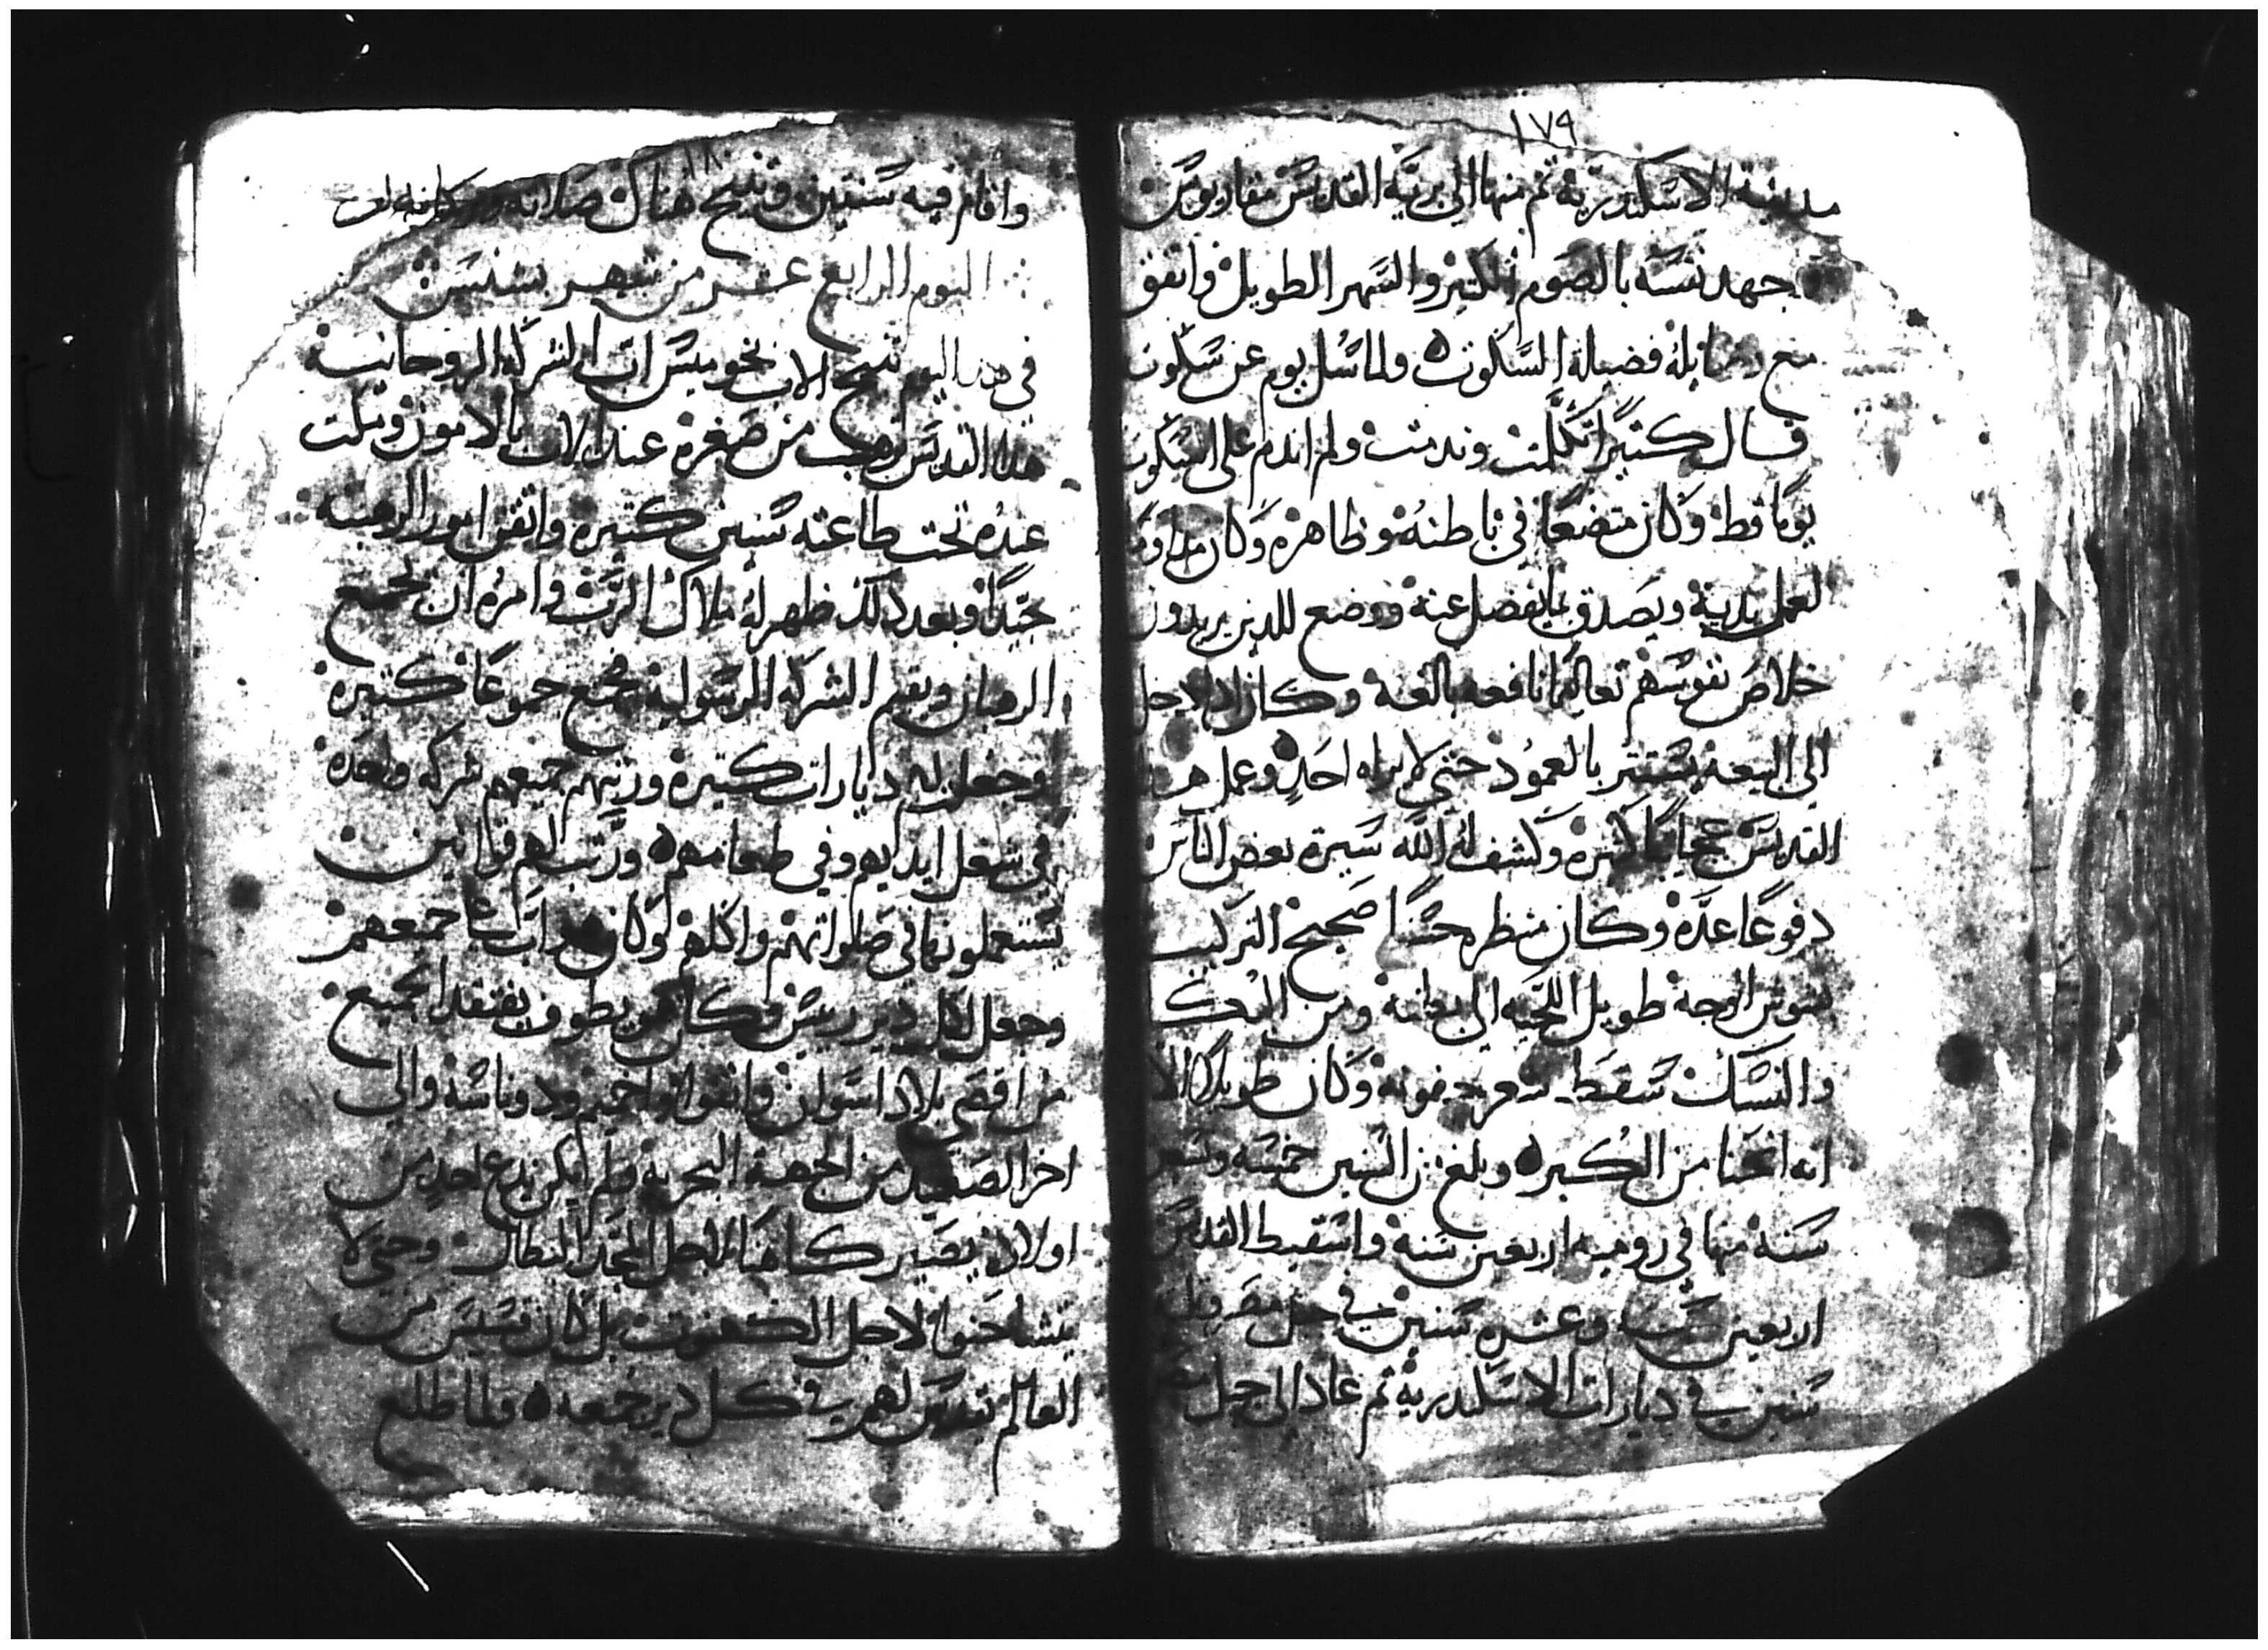 ١٧٩
مدينة الاسكندرية ثم منها الي برية القديس مقاريوس
جهد نفسه بالصوم الكتير والسهر الطويل واتقن
مع فضيلة السكوت ولما سُل يوم عن سكوته
قال كتيرًا تكلمت وندمت ولم اندم على السكوت
يومًا قط وكان متضعًا في باطنه وظاهره وكان
لعمل يديه ويصدق بما يفضل عنه ووضع للدين يريدون
خلاص نفوسهم تعاليمًا نافعه بالغه وكان ادا دخل
الي البيعه يستتر بالعمود حتي لا يراه احدٍ وعمل هدا
القديس عجايبًا كتيره وكشف له الله سيرة بعض الناس
دفوعًا عدّه وكان منظره حسنًا صحيح التركيب
بشوش الوجه طويل اللحيه الي بطنه ومن البكا
والنسك سقط شعر جفونه وكان طويلًا الا
انه انحنا من الكبر وبلغ من السنين خمسه وتسعين
سنه منها في روميه اربعين سنه واسقيط القديس
اربعين سنه وعشره سنين في جبل
سنين في ديارات الاسكندرية ثم عاد الي جبل
١٨٠
واقام فيه سنتين وتنيح هناك صلاته
اليوم الرابع عشر من شهر بشنس
في هدا اليوم تنيح الاب بخوميس اب الشركه الروحانيه
هدا القديس ترهب من صغره عند الاب بالامون ومكت
عنده تحت طاعته سنين كتيره واتقن امور الرهبنه
جيدًا وبعد دلك ظهر له ملاك الرب وامره ان يجمع
الرهبان ويقيم الشركه الرسوليه فجمع جموعًا كتيره
وجعل لهم ديارات كتيره ورتبهم جميعهم شركه واحده
في شغل ايديهم وفي طعامهم ورتب لهم قوانين
يستعملونها في صلواتهم واكلهم وكان هو ابًا لجميعهم
وجعل لكل دير ريس وكان هو يطوف يفتقد الجميع
من اقصي بلاد اسوان وادفوا واخميم ودوناسه والي
اخر الصعيد من الجهه البحريه ولم يكن يدع احدٍ من
اولاده يصير كاهنًا لاجل المجد البطال وحتي لا
يتشاحنوا لاجل الكهنوت بل كان قسيس من
العالم يقدس لهم في كل دير جمعه ولما طلع